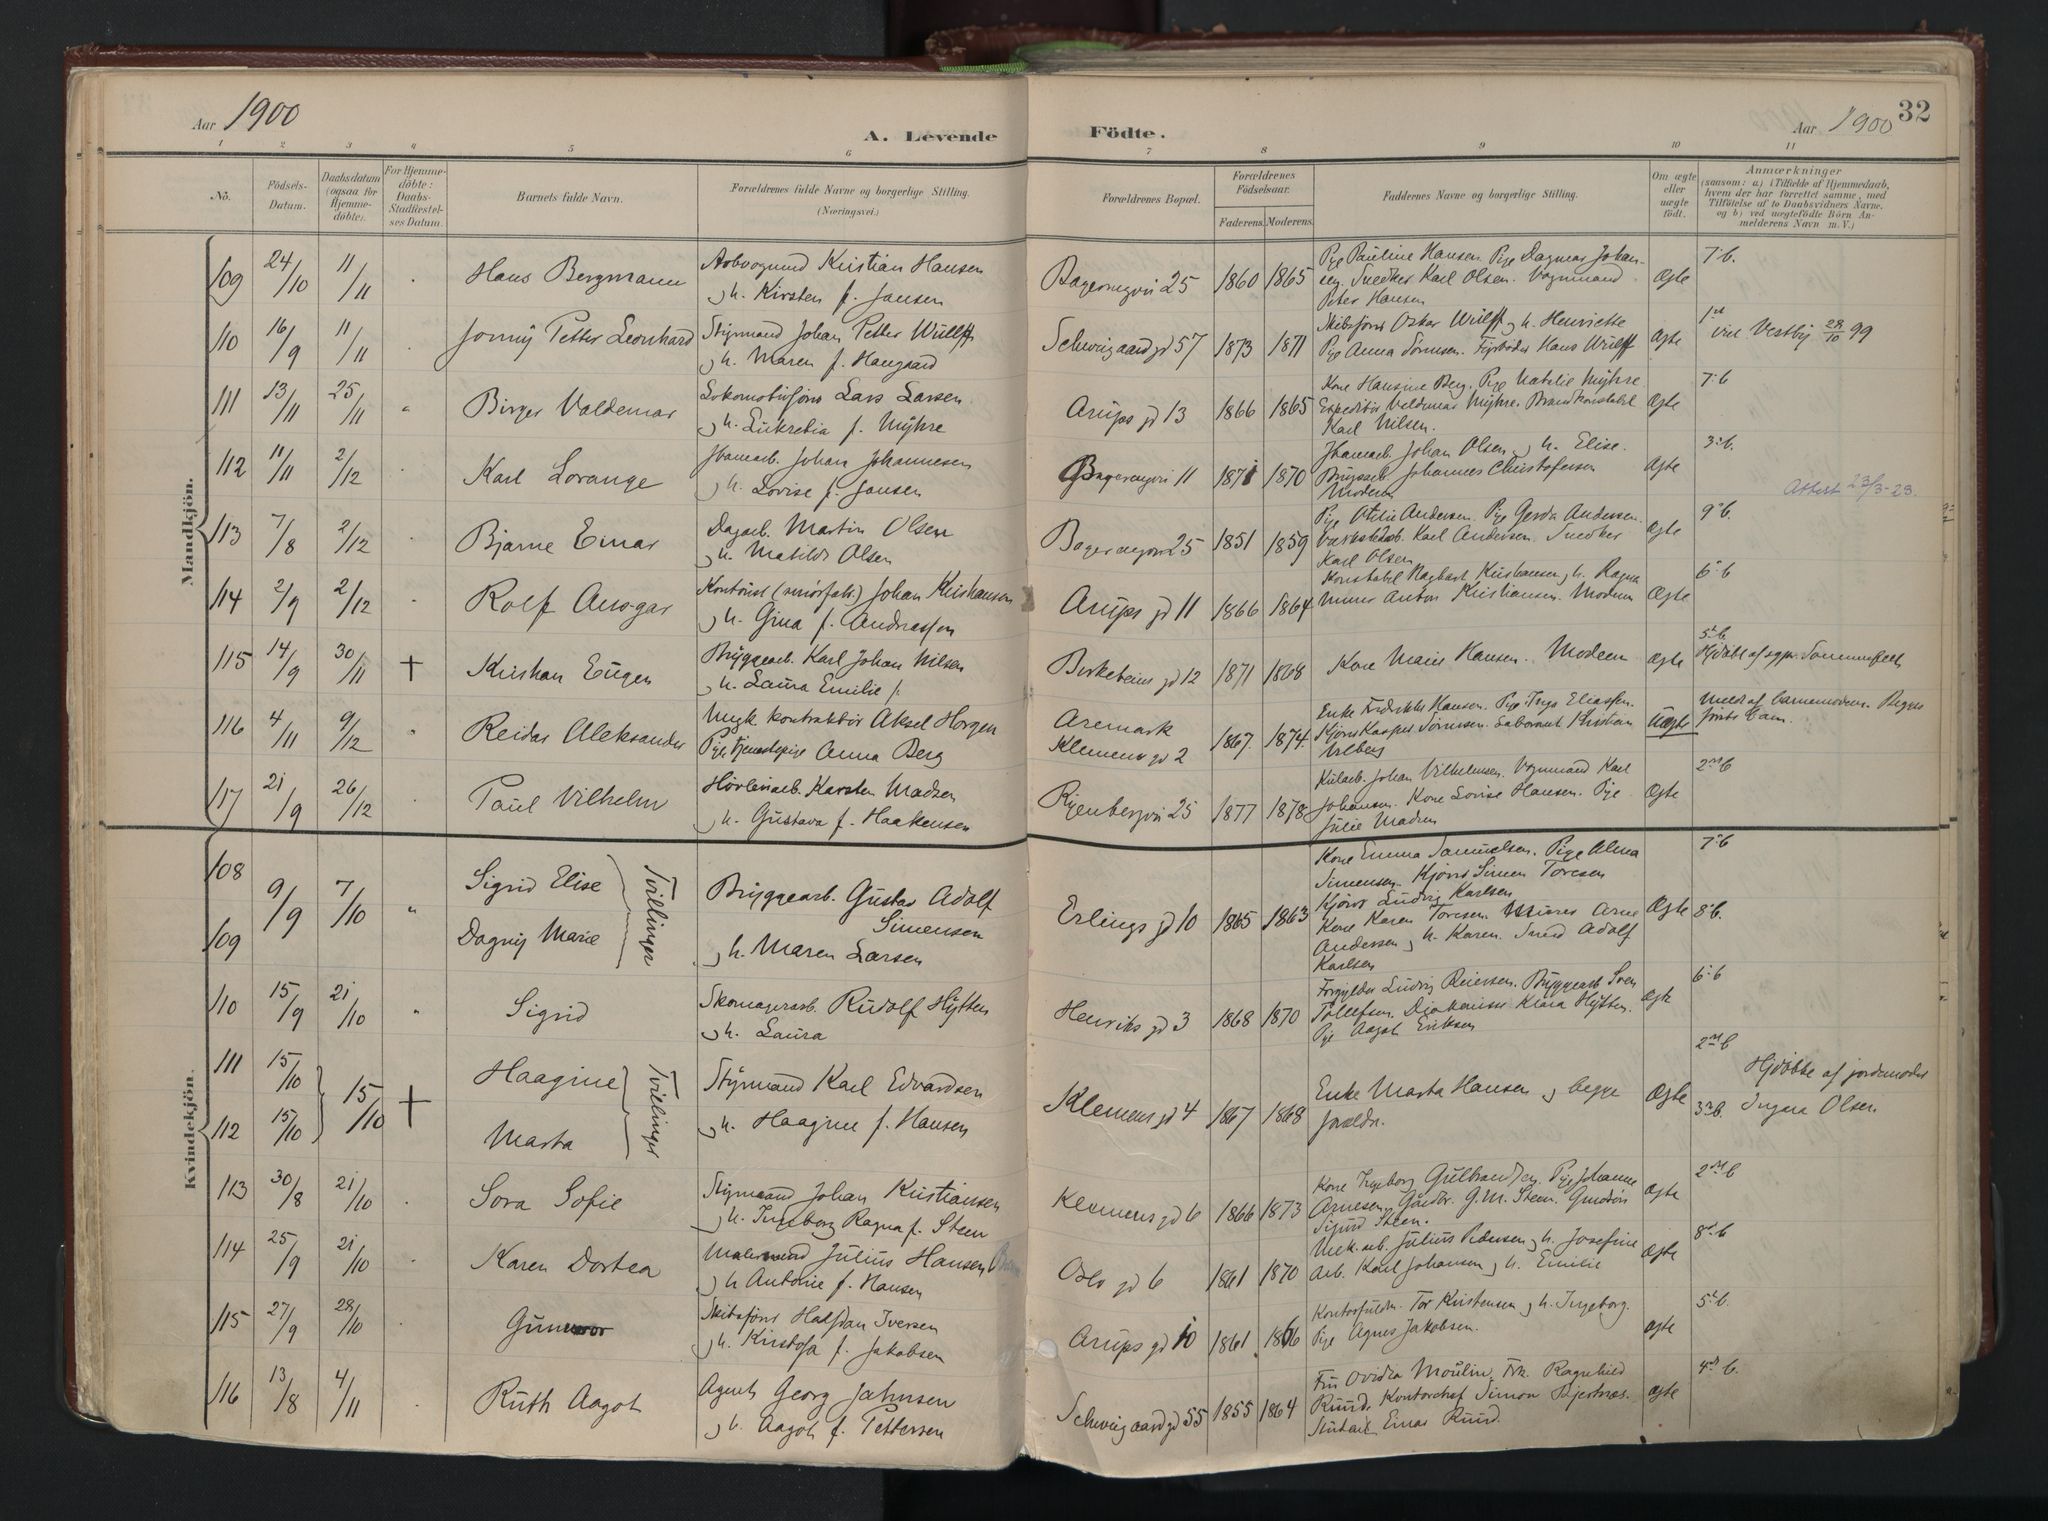 Aar 1900
A. Levende
Födte.
Aar 1900
32
1 2 3 4 5 6 7 8 9 10 11
No.
Födsels-
Datum.
Daabsdatum
(ogsaa for
Hjemme-
döbte).
For Hjemme-
döbte:
Daabs-
Stadfæstel-
ses Datum.
Barnets fulde Navn.
Forældrenes fulde Navne og borgerlige Stilling.
(Næringsvei.)
Forældrenes Bopæl.
Forældrenes
Födselsaar.
Faderens. Moderens.
Faddernes Navne og borgerlige Stilling.
Om ægte
eller
uægte
födt.
Anmærkninger
(saasom: a) i Tilfælde af Hjemmedaab,
hvem der har forrettet samme, med
Tilföielse af to Daabsvidners Navne.
og b) ved uægtefödte Börn An-
melderens Navn m. V.)
Mandkjön.
109 24/10 11/11 Hans Bergmann
Kristian Hansen
og h. Kirsten f. Jansen
25 1860 1865
Pige Pauline Hansen. Pige Dagmar Johan-
sen. Snedker Karl Olsen. Vognmand
Peter Hansen
Ægte 7. b.
110 16/9 11/11 Jonny Petter Leonhard
Styrmand Johan Petter Wulff
og h. Maren f. Haugaard
Schweigaard gd 57 1873 1871
Skibsförer Oskar Wulff og h. Henriette
Pige Anna Sörensen. Fyrböder Hans Wulff
Ægte viet Vestby 28/10 99
111 13/11 25/11 Birger Valdemar
Lokomotivförer Lars Larsen
og h. Lukretia f. Myhre
Arups gd 13 1866 1865
Kone Hansine Berg. Pige Natalie Myhre.
Expeditör Valdemar Myhre. Brandkonstabel
Karl Nilsen.
Ægte 7. b
112 11/11 2/12 Karl Lorange
Johan Johannesen
og h. Lovise f. Jansen
11 1871 1870
Johan Olsen og h. Elise.
Johannes Christofersen
Moderen
Ægte 3. b.
Attest 23/3-23.
113 7/8 2/12 Bjarne Einar
Dagarb. Martin Olsen
og h. Matilde Olsen
25 1851 1859
Pige Otilie Andersen. Pige Gerda Andersen.
Værkstedsarb. Karl Andersen. Snedker
Karl Olsen
Ægte 9. b.
114 2/9 2/12 Rolf Ansgar
Johan Kristiansen
og h. Gina f. Andreassen
Arups gd 11 1866 1864
Konstabel Kristiansen og h. Ragna
Murer Anton Kristiansen. Moderen
Ægte 6. b
115 14/9 30/11 + Kristian Eugen
Bryggearb. Karl Johan Nilsen
og h. Laura Emilie f.
Birkebeiner gd 12 1871 1868
Kone Marie Hansen. Moderen
Ægte 5. b.
Hjdöbt af sgpr. Sommerfelt
116 4/11 9/12 Reidar Aleksander
Ungk. kontraktör Aksel Horgen
Pige tjenestepige Anna Berg
Aremark
Klemens gd 2 1867. 1874.
Enke Fredrikke Hansen. Pige Inga Eliassen.
Kjörer Kasper Sörensen. Laborant Kristian
Uægte
Meld. af barnemoderen. Begges
förste barn.
117 21/9 26/12 Paul Vilhelm
Hövleriarb. Karsten Madsen
og h. Gustava f. Haakensen
Ryenbergvei 25 1877 1878
Kularb. Johan Vilhelmsen. Vognmand Karl
Johansen. Kone Lovise Hansen. Pige
Julie Madsen
Ægte 2. b
Kvindekjön.
108 9/9 7/10 Sigrid Elise
109 Dagny Marie
Tvillinger
Bryggearb. Gustav Adolf
Simensen
og h. Maren Larsen
Erlings gd 10 1865 1863
Kone Emma Samuelsen. Pige Alma
Simensen. Kjörer Simen Toresen
Kjörer Ludvig Karlsen
Kone Karen Toresen. Murer Arne
Andersen og h. Karen. Smed Adolf
Karlsen
Ægte 7. b
8. b.
110 15/9 21/10 Sigrid
Skomagerarb. Rudolf Hytten
og h. Laura
Henriks gd 3 1868 1870
Forgylder Ludvig Reiersen. Bryggearb. Sven
Tollefsen. Diakonisse Klara Hytten.
Pige Aagot Eriksen
Ægte 6. b
111 15/10 15/10 + Haagine
112 15/10 Marta
Tvillinger
Styrmand Karl Edvardsen
og h. Haagine f. Hansen
Klemens gd 4 1867 1868
Enke Marta Hansen og begge
foreldr.
Ægte 2. b
3. b.
Hjdöbte af jordemoder
Ingara Olsen
113 30/8 21/10 Sora Sofie
Styrmand Johan Kristiansen
og h. Ingeborg Ragna f. Steen
Klemens gd 6 1866 1873
Kone Ingeborg Gulbrandsen. Pige Johanne
Arnesen. Gaardbr. G.M. Steen.
Sigurd Steen.
Ægte 2. b
114 25/9 21/10 Karen Dortea
Julius Hansen
og h. Antonie f. Hansen
Oslo gd 6 1861 1870
Mek. arb. Julius Pedersen og h. Josefine
Arb. Karl Johansen og h. Emilie
Ægte 8. b
115 27/9 28/10 Gunvor
Skibsförer Halfdan Iversen
og h. Kristofa f. Jakobsen
Arups gd 10 1861 1866
Tor Kristensen og h. Ingeborg.
Pige Agnes Jakobsen.
Ægte 5. b.
116 13/8 4/11 Ruth Aagot
Agent Georg Jahnsen
og h. Aagot f. Pettersen
Schweigaard gd 55 1855 1864
Fru Ovidia Moulin. Frk. Ragnhild
Ruud. Kontorchef Simon Bjertnæs.
Student Einar Ruud.
Ægte 4. b.